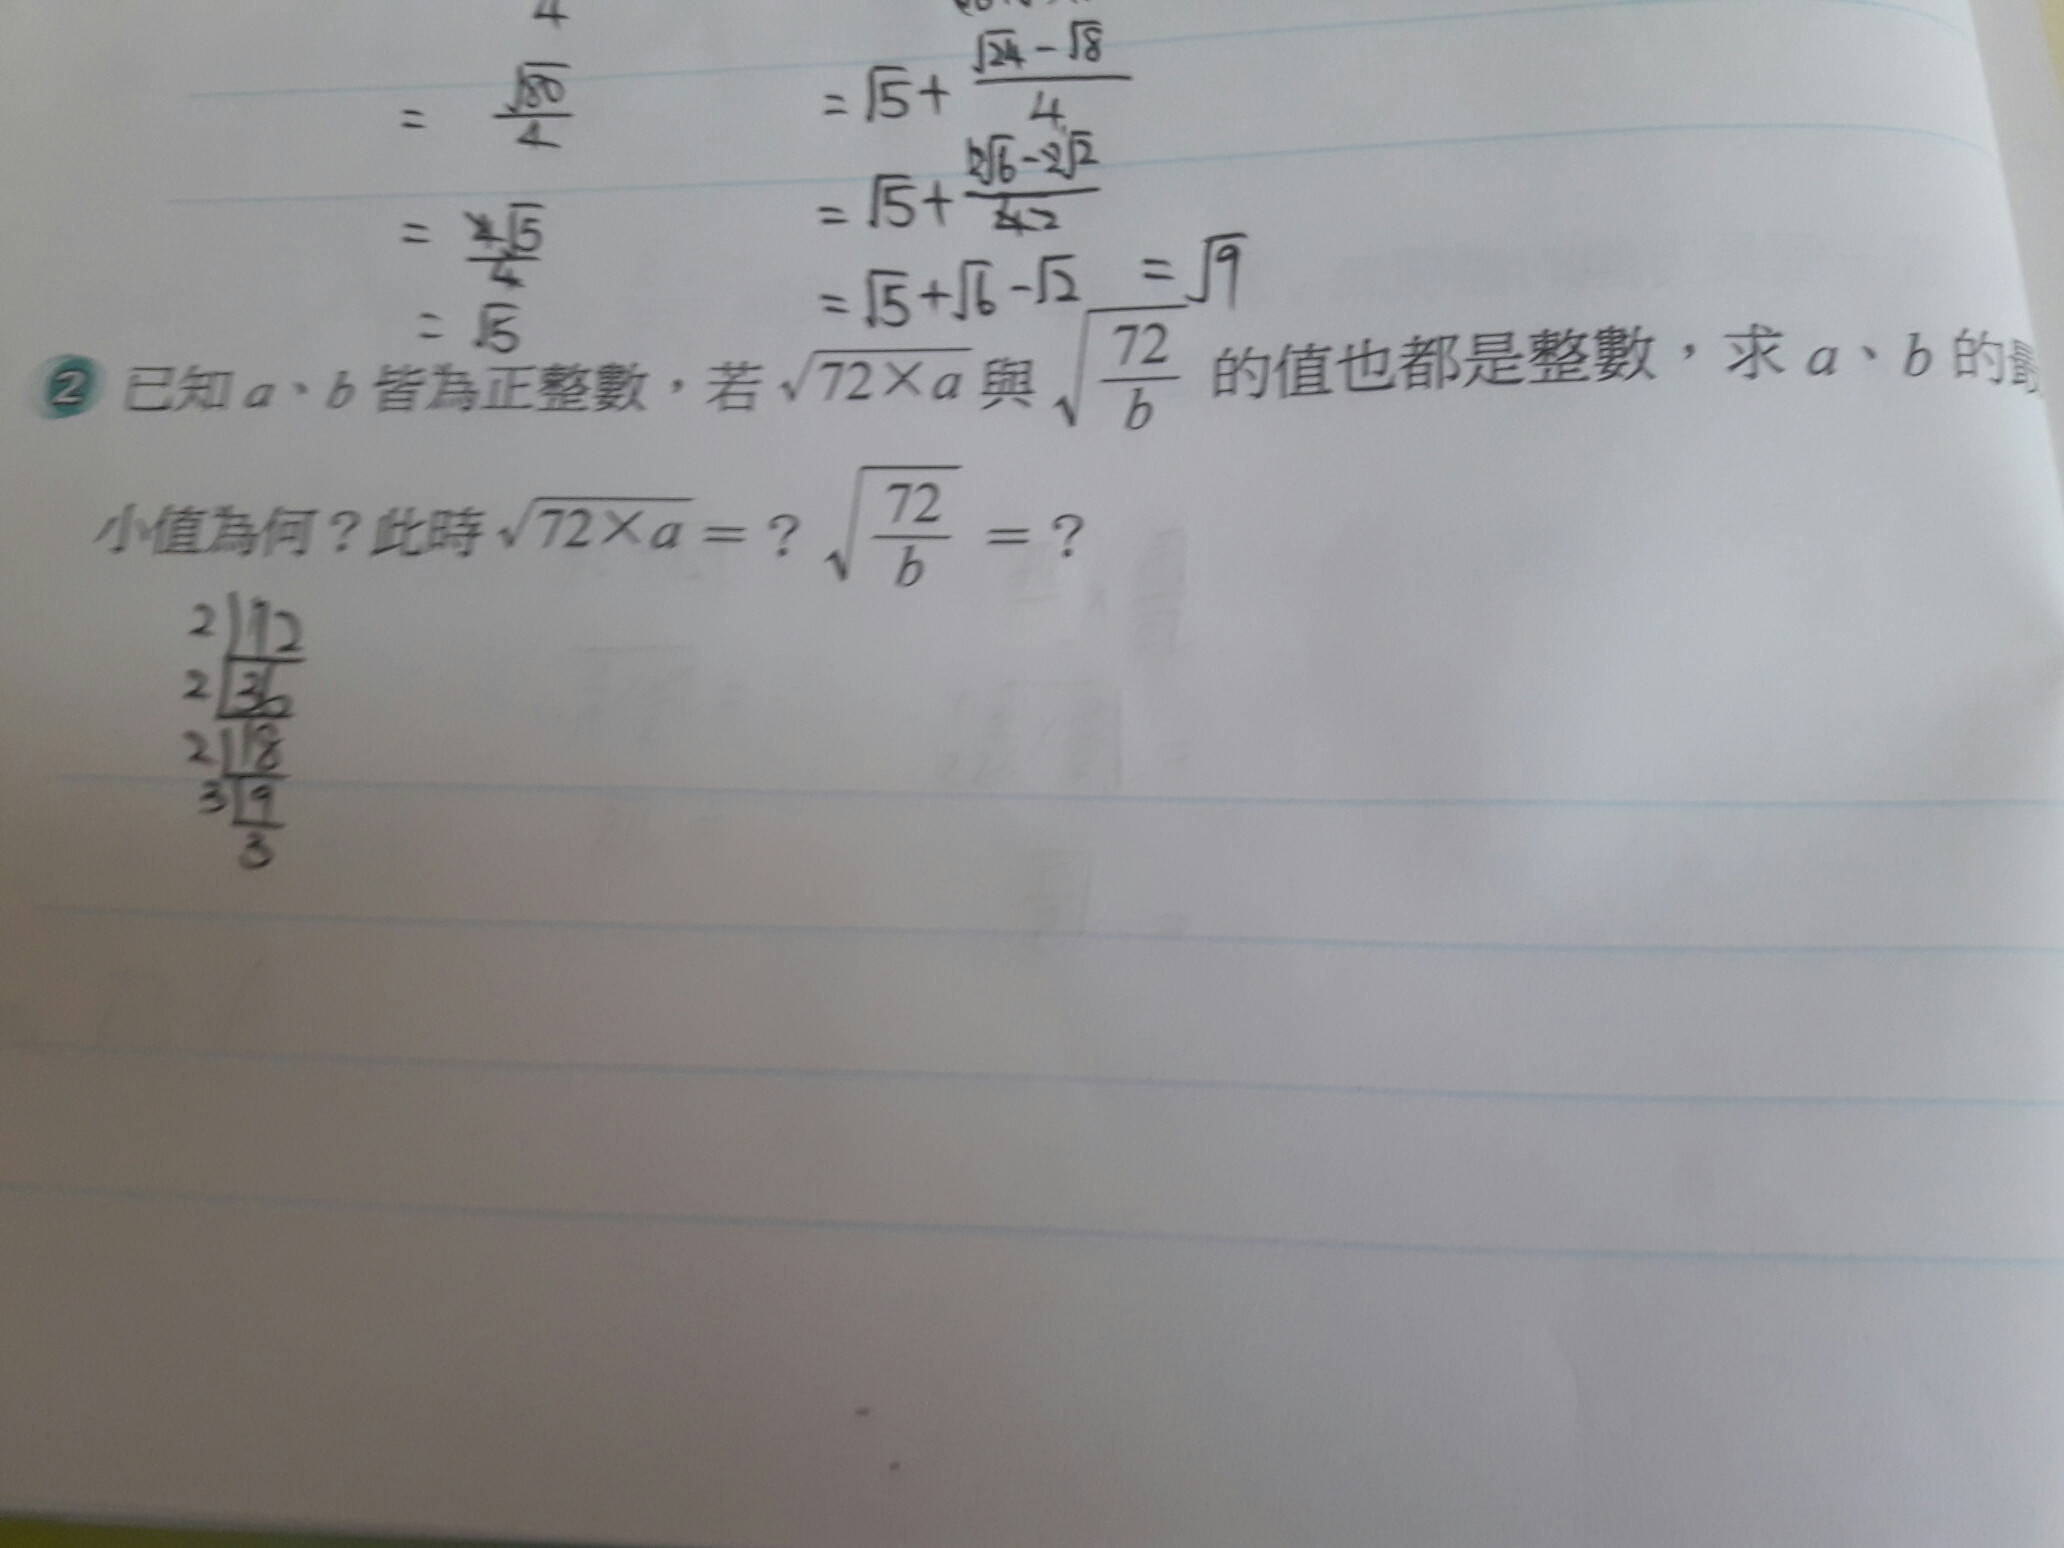 4
= √80/4
= 4√5/4
= √5
= √5 + (√24 - √8)/4
= √5 + (2√6 - 2√2)/42
= √5 + √6 - √2 = √9
2 已知 a、b 皆為正整數，若 √(72×a) 與 √(72/b) 的值也都是整數，求 a、b 的
小值為何？此時 √(72×a) = ？ √(72/b) = ？
2 72
2 36
2 18
3 9
3